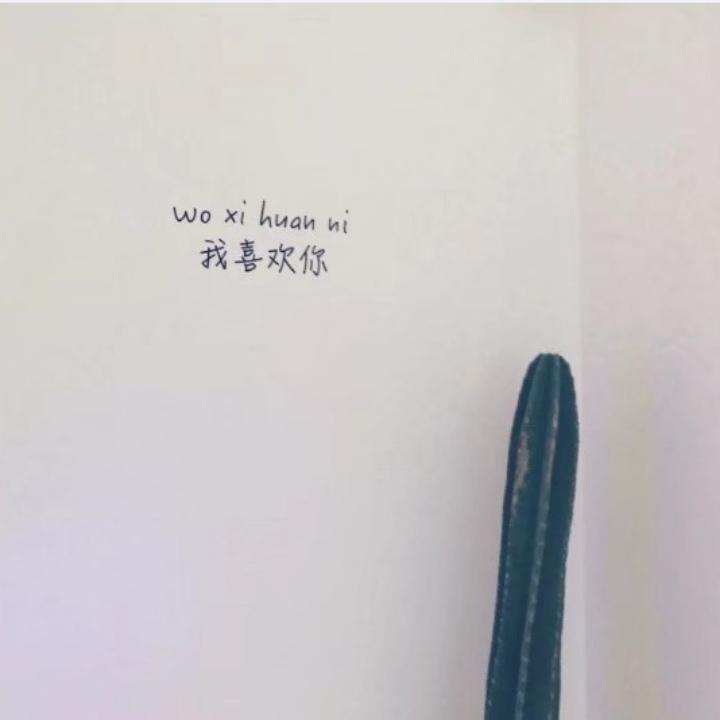 wo xi huan ni
我喜欢你